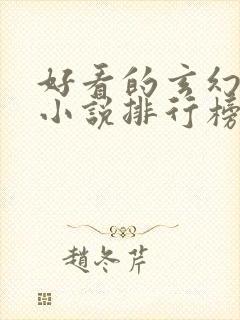 好看的玄幻
小说排行榜
趙冬芹